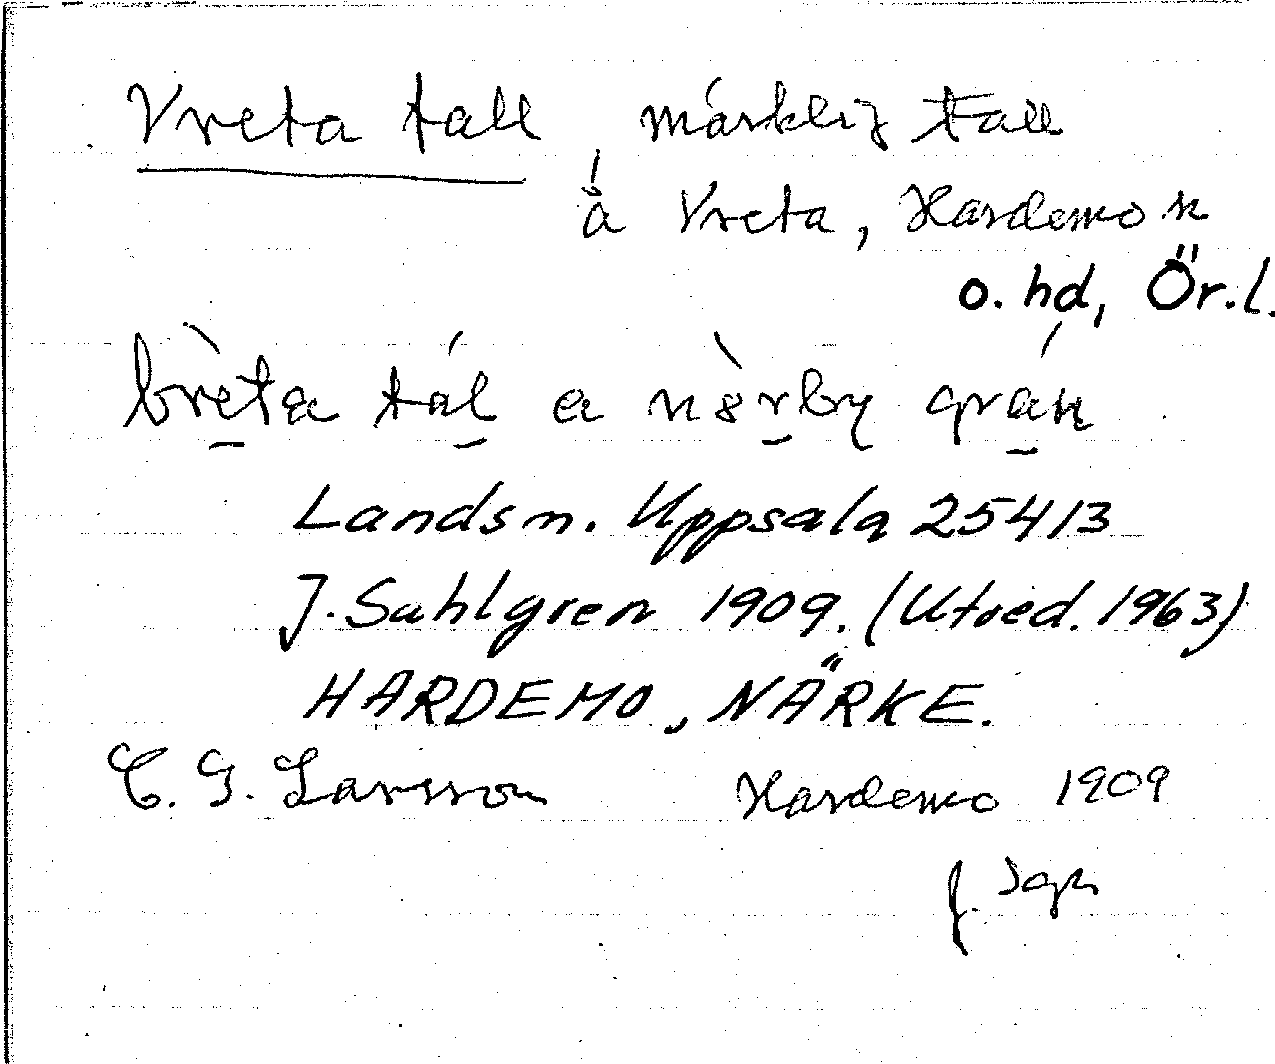 Vreta tall, märklig tall
å Vreta, Hardemo sn
o. hd, Ör.l.
brèta tál a nòrby grán
Landsm. Uppsala 25413
J. Sahlgren 1909. (Utved. 1963)
HARDEMO, NÄRKE.
C. G. Larsson Hardemo 1909
J. Sgn